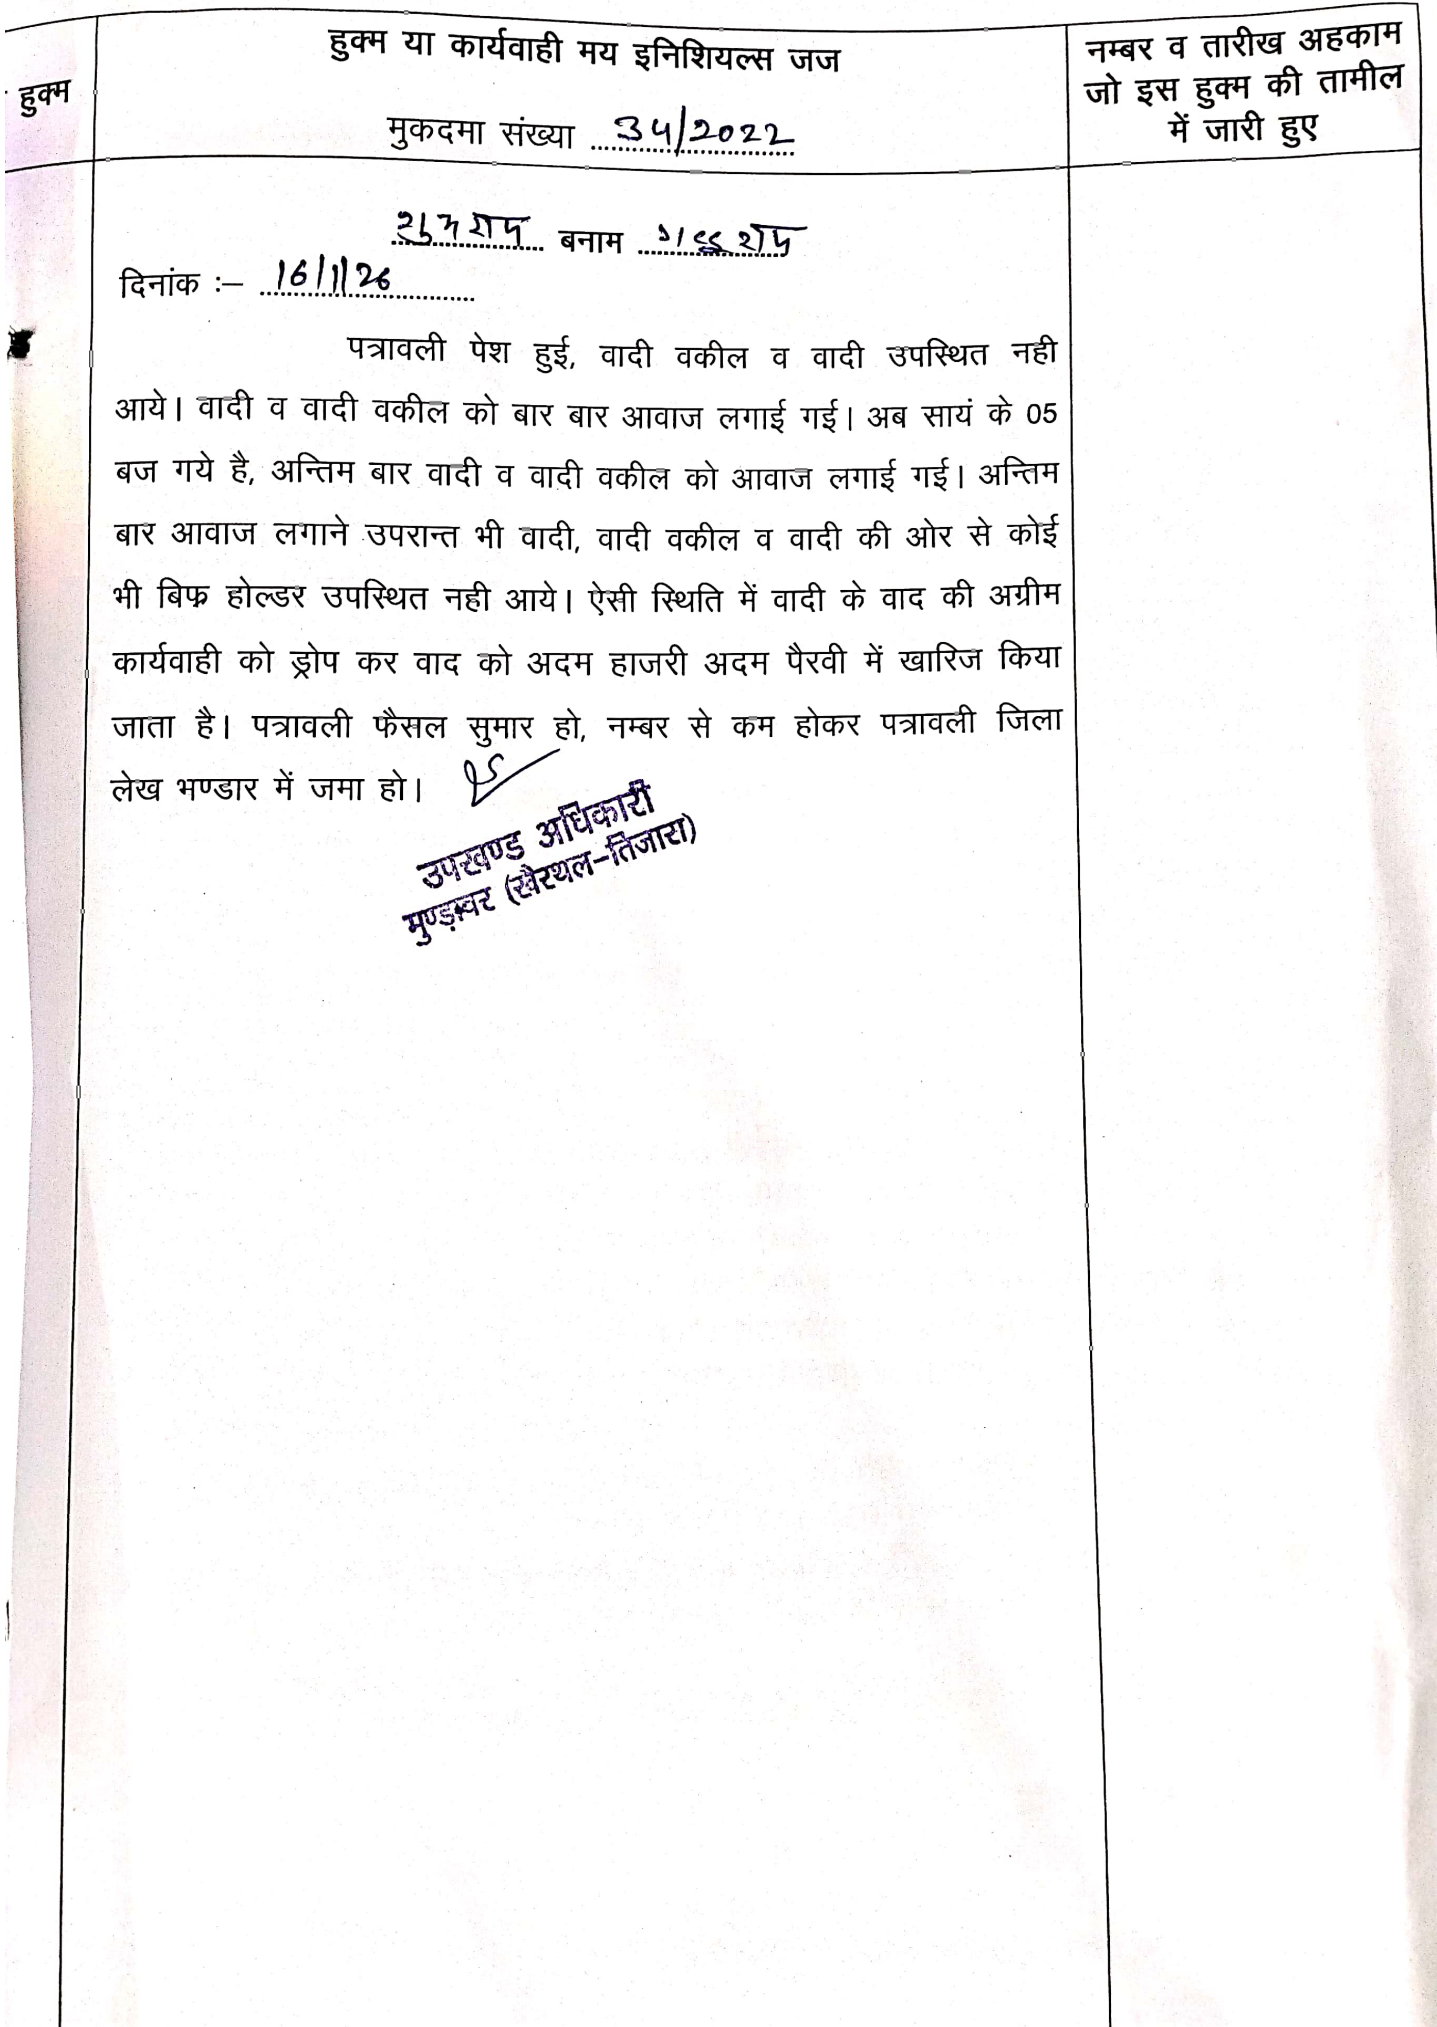 हुक्म
हुक्म या कार्यवाही मय इनिशियल्स जज
मुकदमा संख्या 34/2022
नम्बर व तारीख अहकाम
जो इस हुक्म की तामील
में जारी हुए
बनाम
दिनांक :– 16/1/26
पत्रावली पेश हुई, वादी वकील व वादी उपस्थित नही
आये। वादी व वादी वकील को बार बार आवाज लगाई गई। अब सायं के 05
बज गये है, अन्तिम बार वादी व वादी वकील को आवाज लगाई गई। अन्तिम
बार आवाज लगाने उपरान्त भी वादी, वादी वकील व वादी की ओर से कोई
भी बिफ्र होल्डर उपस्थित नही आये। ऐसी स्थिति में वादी के वाद की अग्रीम
कार्यवाही को ड्रोप कर वाद को अदम हाजरी अदम पैरवी में खारिज किया
जाता है। पत्रावली फैसल सुमार हो, नम्बर से कम होकर पत्रावली जिला
लेख भण्डार में जमा हो।
उपखण्ड अधिकारी
मुण्ड़ावर (खैरथल–तिजारा)